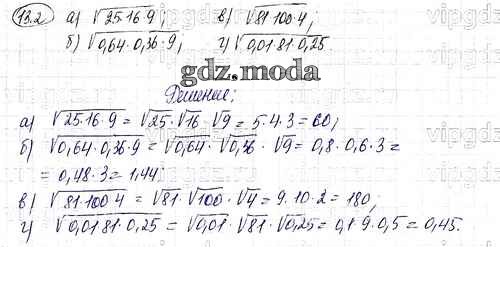 13.2 а) √25·16·9; в) √81·100·4;
б) √0,64·0,36·9; г) √0,01·81·0,25
gdz.moda
Решение:
а) √25·16·9 = √25·√16·√9 = 5·4·3 = 60;
б) √0,64·0,36·9 = √0,64·√0,36·√9 = 0,8·0,6·3 =
= 0,48·3 = 1,44.
в) √81·100·4 = √81·√100·√4 = 9·10·2 = 180;
г) √0,01·81·0,25 = √0,01·√81·√0,25 = 0,1·9·0,5 = 0,45.